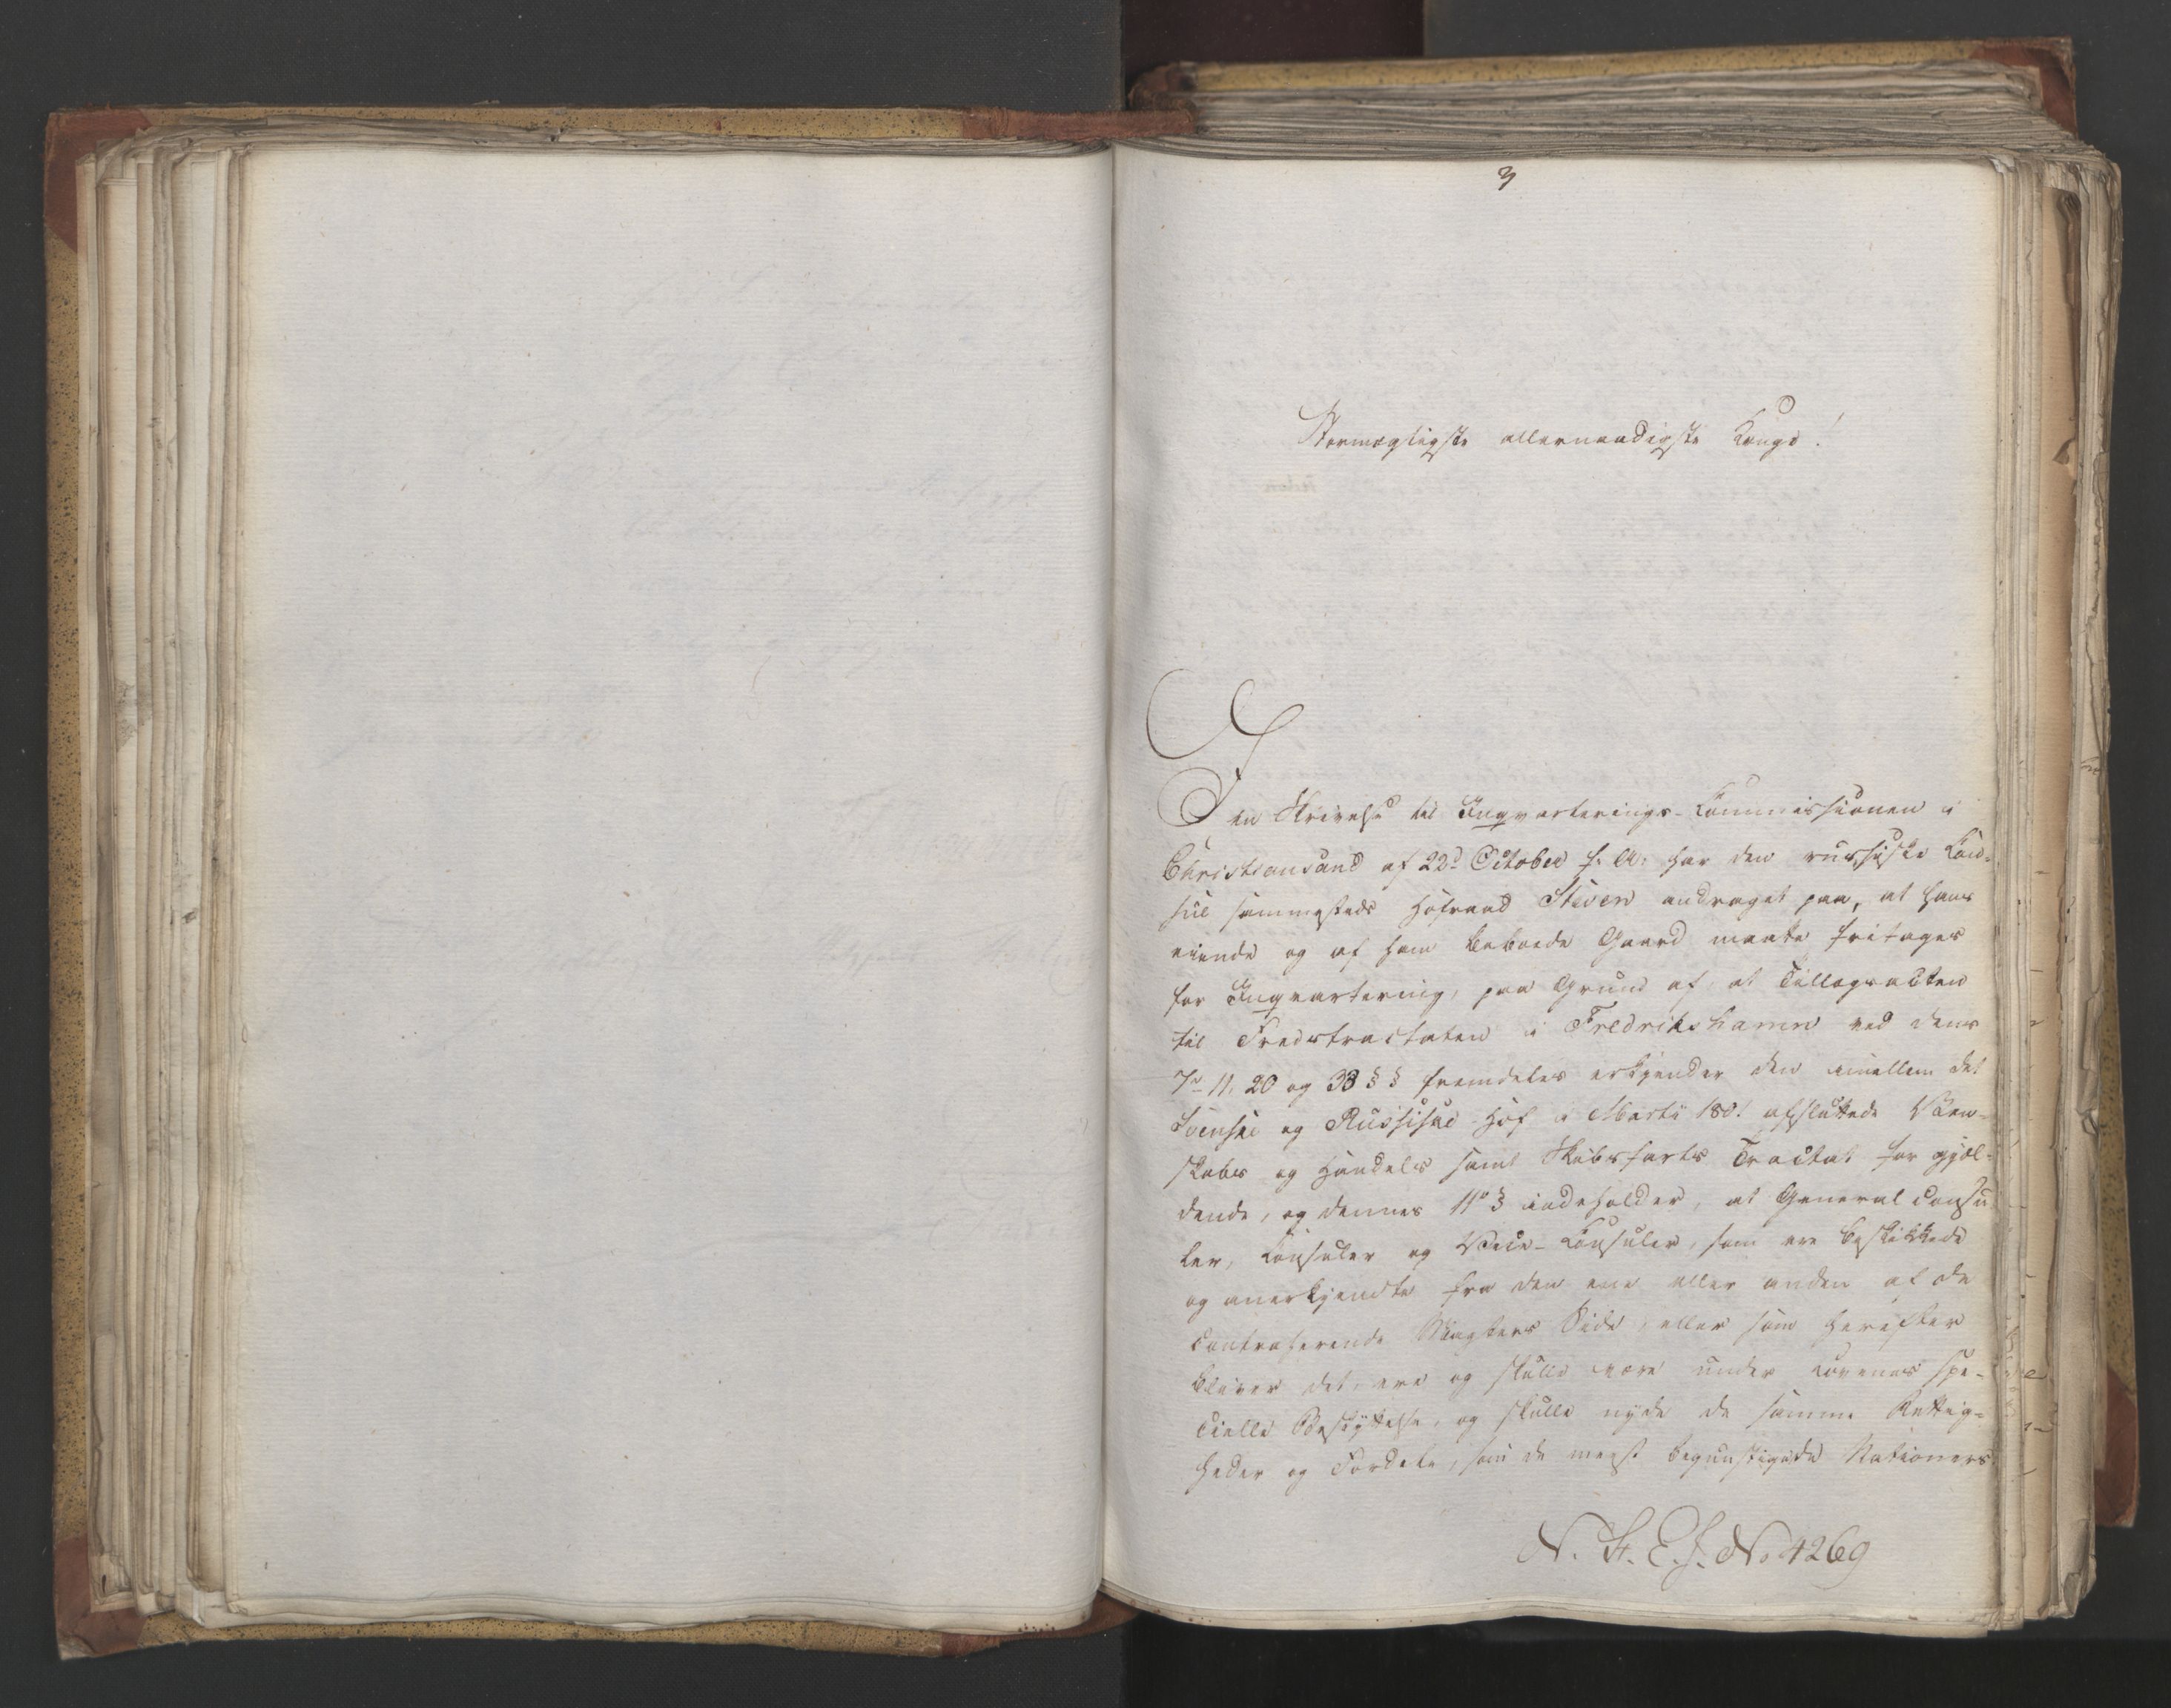 3
Stormægtigste allernaadigste Konge!
I en Skrivelse til Inqvarterings-Commissionen i
Christiansand af 22d October f: A: har den russiske Con-
sul sammesteds Hofraad Steven andraget paa, at hans
eiende og af ham beboede Gaard maate fritages
for Inqvartering, paa Grund af, at Tillægsacten
til Fredstractaten i Fredrikshamn ved dens
7de 11, 20 og 33 § § fremdeles erkjender den imellem det
Svenske og Russiske Hof i Martii 1801 afsluttede Ven-
skabs og Handels samt Skibsfarts Tractat for gjæl-
dende, og dennes 11te § indeholder, at General Consu
ler, Consuler og Vice-Consuler, som ere beskikkede
og anerkjendte fra den ene eller anden af de
contraherende Magters Side, eller som herefter
bliver det, ere og skulle være under Lovenes spe-
cielle Beskyttelse, og skulle nyde de samme Rettig-
heder og Fordele, som de meest begunstigede Nationers
N. St. E. J. No 4269